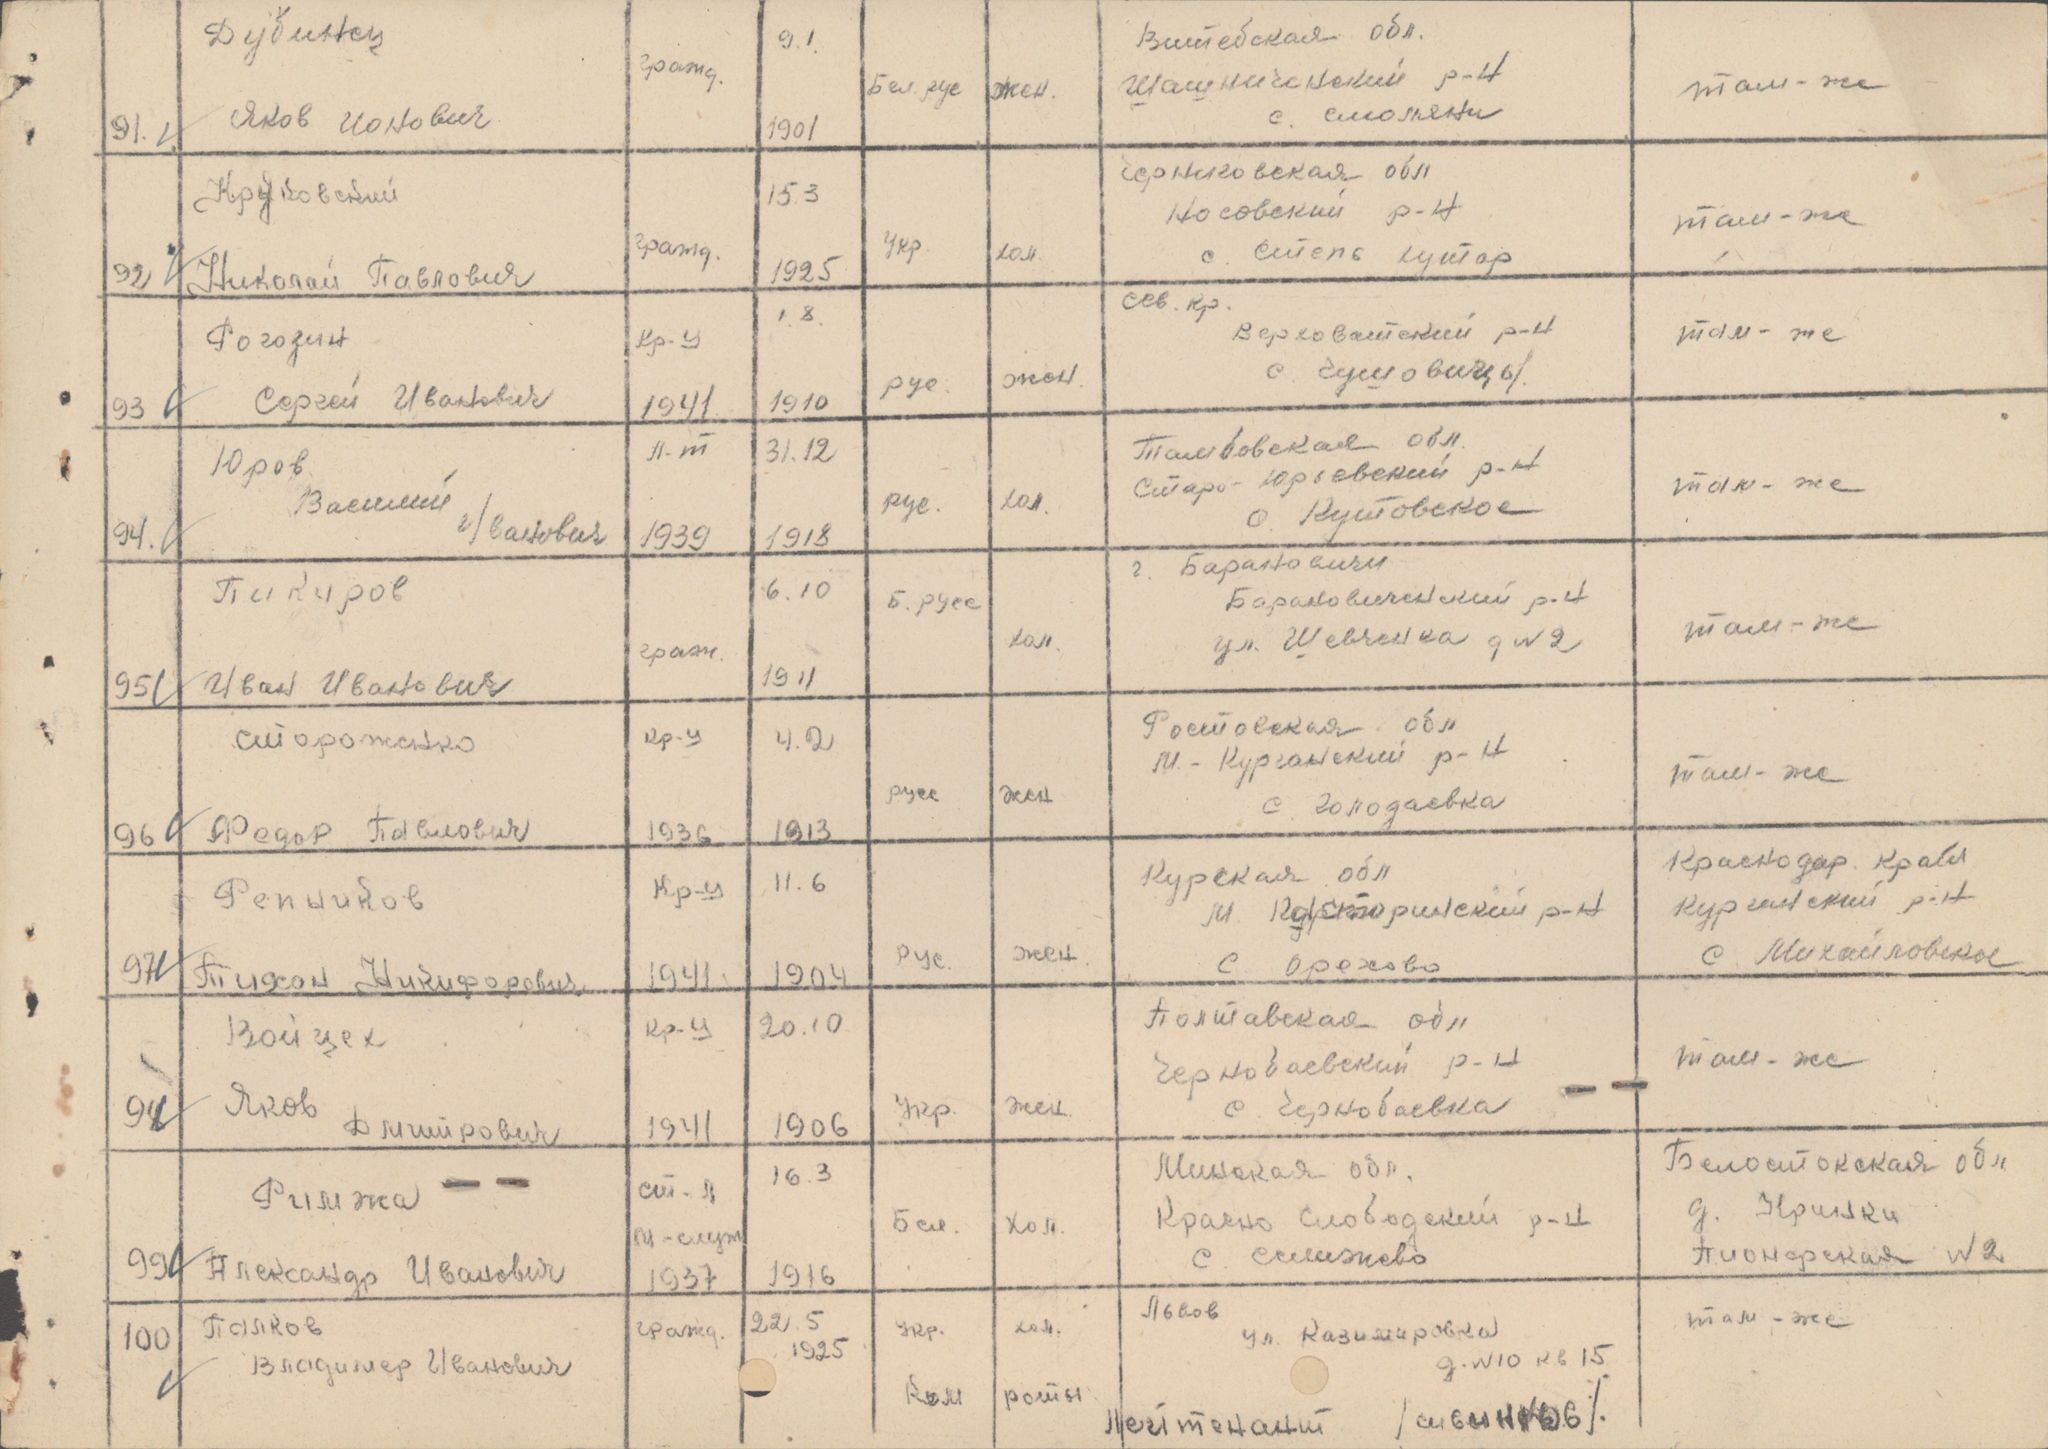 91. Дубинец Яков Ионович гражд. 9.1. 1901 Бел.рус жен. Витебская обл. Шашничанский р-н с. Смоляни там-же
92 Круковский Николай Павлович гражд. 15.3 1925 Укр. хол. Черниковская обл Носовский р-н с. Степь хутор там-же
93 Рогозин Сергей Иванович Кр-ц 1941 1.8. 1910 рус. жен. Сев. кр. Верховатский р-н с. Чушовицы. там-же
94. Юров Василий Иванович Л-т 1939 31.12 1918 рус. хол. Тамбовская обл. Старо-Юрьевский р-н с. Кутовское там-же
95 Пикиров Иван Иванович граж. 6.10 1911 Б.русс хол. г. Барановичи Барановиченский р-н ул. Шевченка д N2 там-же
96 Стороженко Федор Павлович Кр-ц 1936 4.2 1913 русс жен Ростовская обл М.-Курганский р-н с. Голодаевка там-же
97 Репников Тихон Никифорович Кр-ц 1941. 11.6 1904 рус. жен. Курская обл М. р-н с. Орехово Краснодар. край Курганский р-н с Михайловское
Войцех Яков Дмитрович Кр-ц 1941 20.10 1906 Укр. жен. Полтавская обл Чернобаевский р-н с. Чернобаевка там-же
99 Римжа Александр Иванович ст.-л т-служ 1937 16.3 1916 Бел. хол. Минская обл. Красно Слободский р-н с Селижево Белостокская обл д. Кринки Пионерская N2
100 Палков Владимер Иванович гражд. 22.5 1925 Укр. хол. Львов ул. Казимировка д.N10 кв 15 там-же
Ком роты Лейтенант